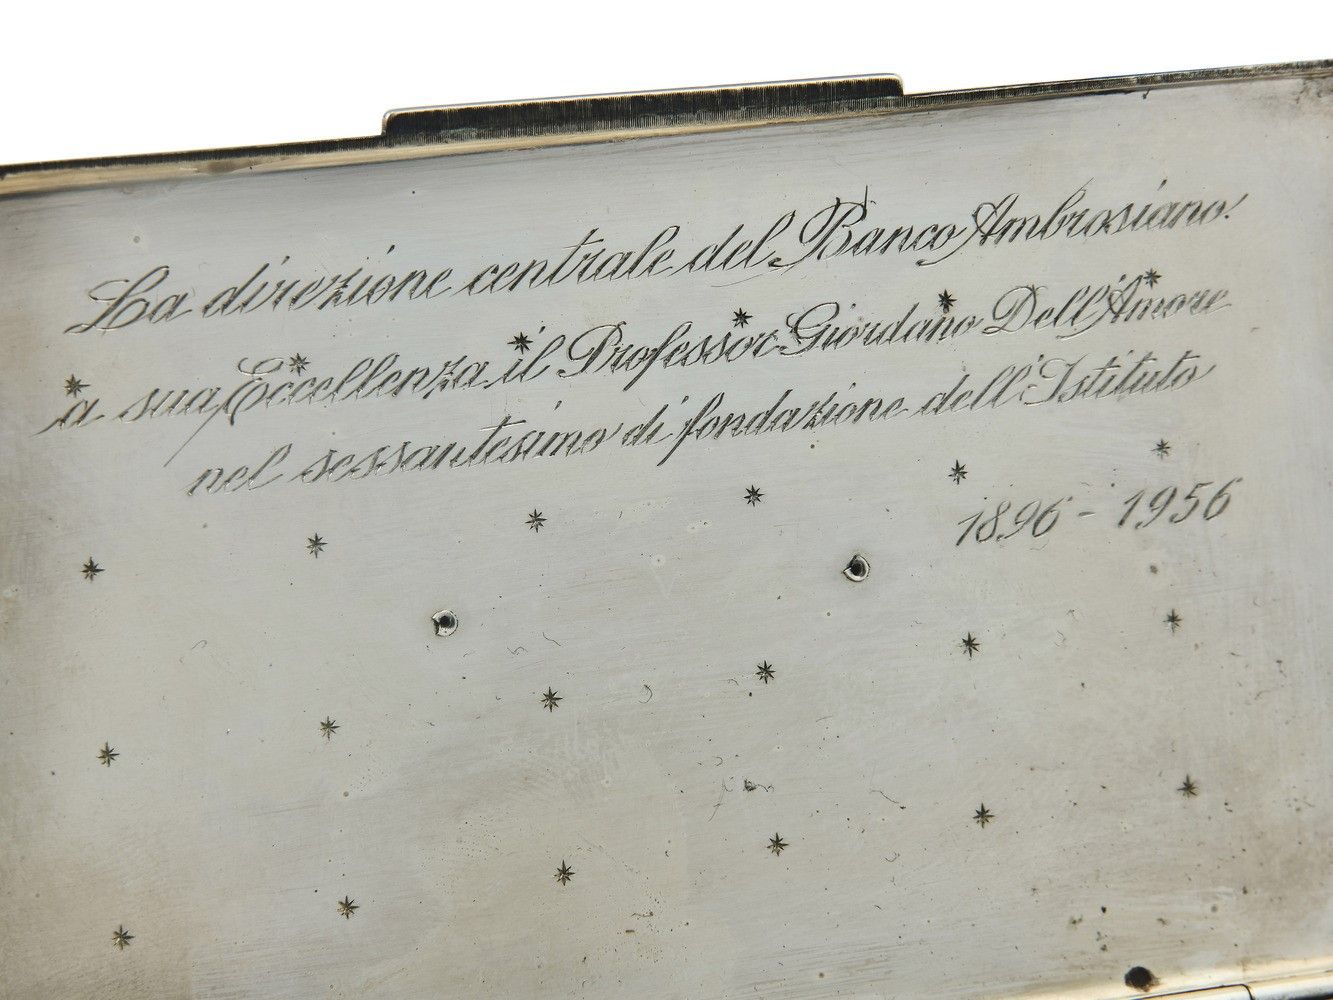 La direzione centrale del Banco Ambrosiano
a sua Eccellenza il Professor Giordano Dell'Amore
nel sessantesimo di fondazione dell'Istituto
1896 - 1956